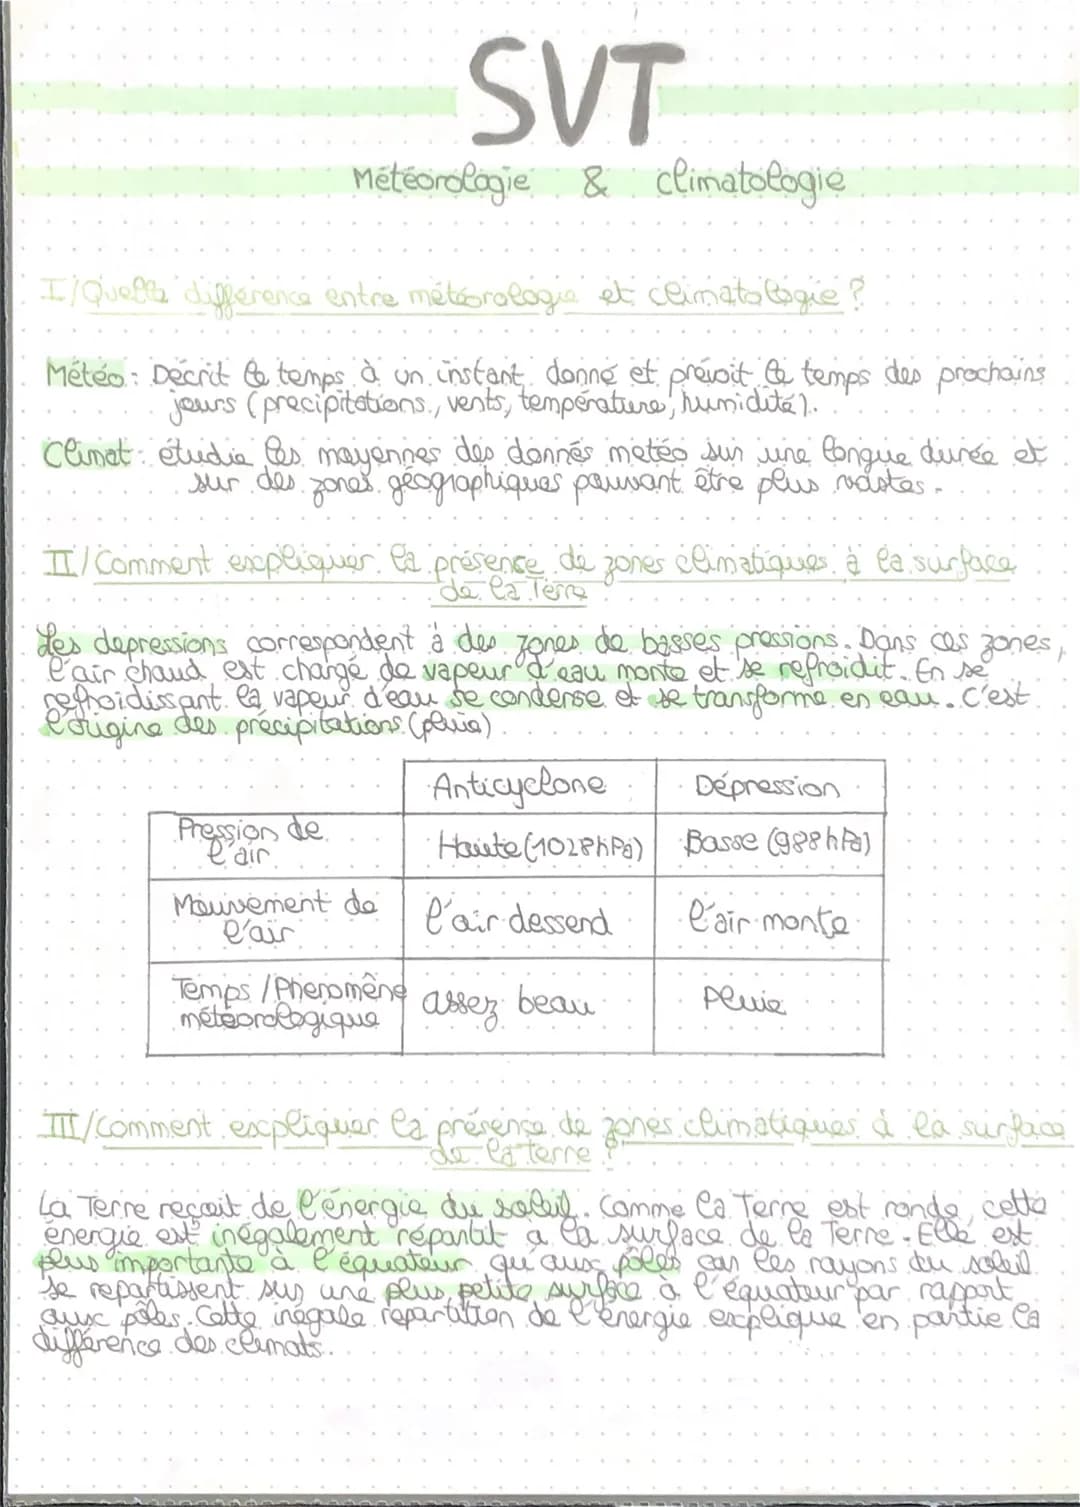 SVT
Météorologie & climatologie
I/Quelle différence entre météorologie et climatologie ?
Météo : Décrit le temps à un instant donné et prévoit le temps des prochains
jours (precipitations, vents, température, humidité).
Climat : étudie les moyennes des donnés metéo sur une longue durée et
sur des zones géographiques pouvant être plus vastes.
II/Comment expliquer la présence de zones climatiques à la surface
de la Terre
Les depressions correspondent à des zones de basses pressions. Dans ces zones,
l'air chaud est chargé de vapeur d'eau monte et se refroidit. En se
refroidissant la vapeur d'eau se condense et se transforme en eau. C'est
l'origine des précipitations (pluie)
Anticyclone Dépression
Pression de l'air Haute (1028hPa) Basse (988hPa)
Mouvement de l'air l'air dessend l'air monte
Temps / Phenomène météorologique assez beau Pluie
III/Comment expliquer la présence de zones climatiques à la surface
de la terre ?
La Terre reçoit de l'énergie du soleil. Comme la Terre est ronde, cette
énergie est inégalement répartit a la surface de la Terre. Elle est
plus importante à l'équateur qu'aux pôles car les rayons du soleil
se repartissent sur une plus petite surface à l'équateur par rapport
aux pôles. Cette inégale répartition de l'énergie explique en partie la
différence des climats.